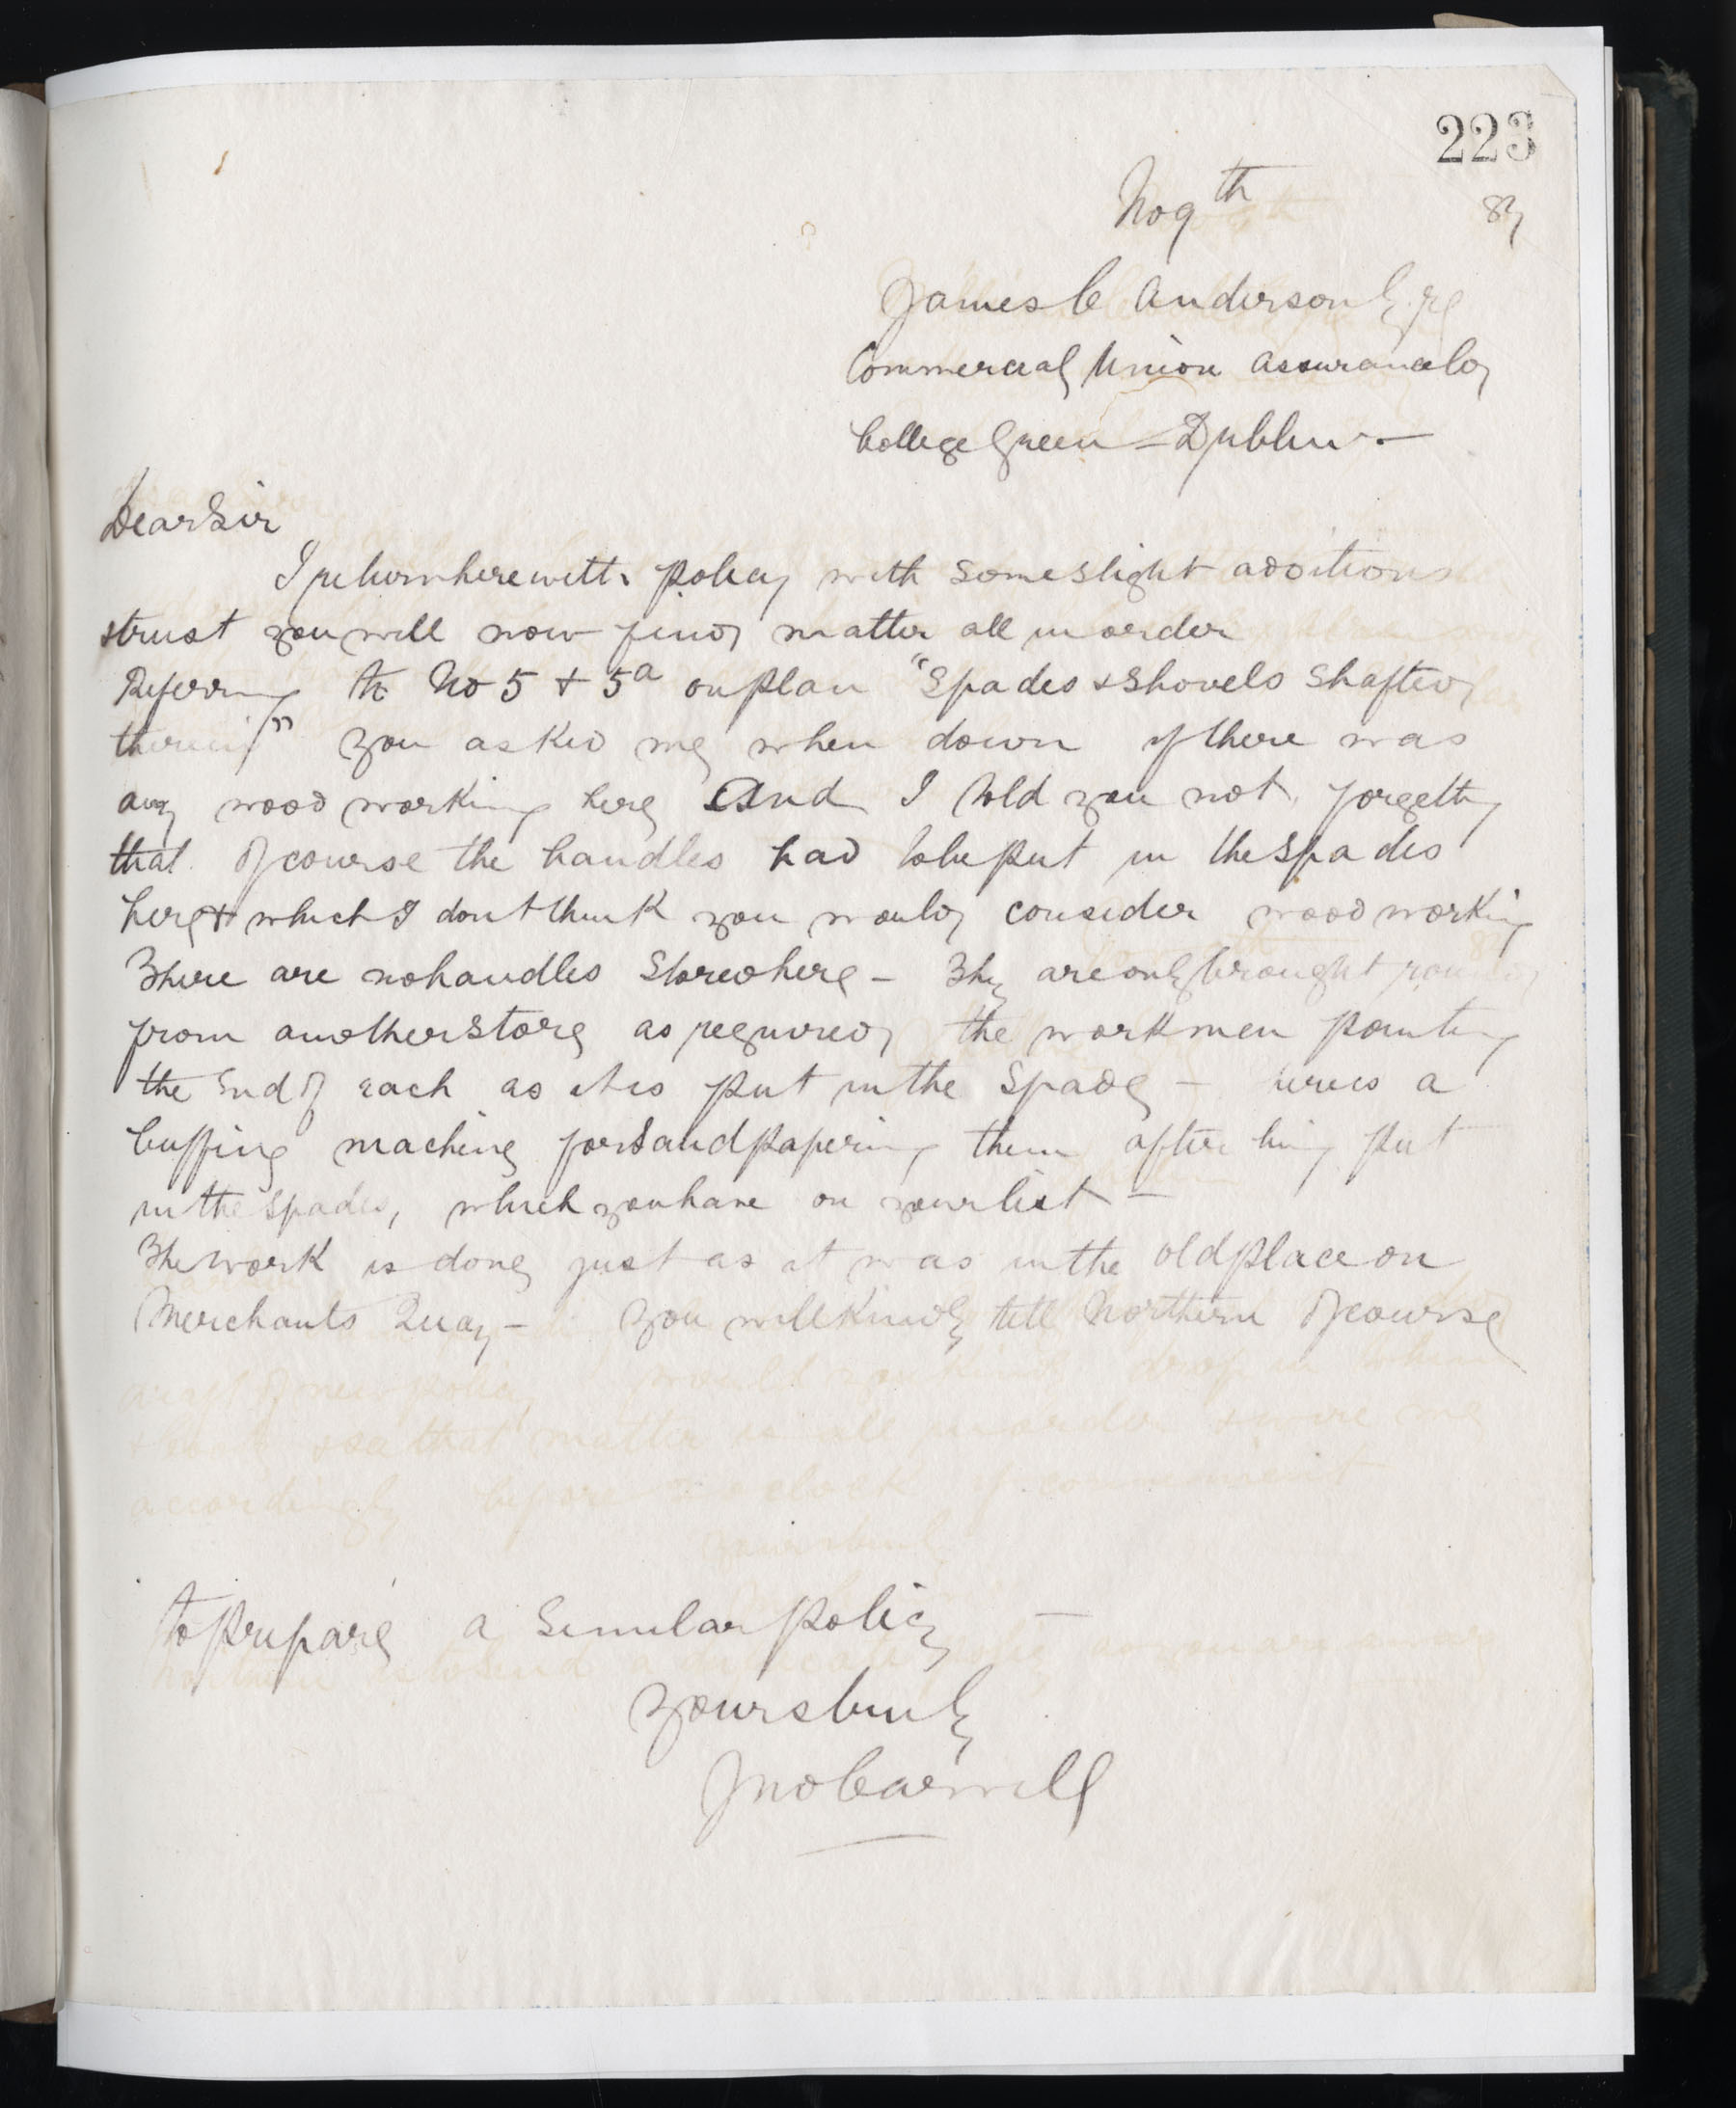 223
Nov 9th 89
James C Anderson Esq
Commercial Union Assurance Co
College Green - Dublin -
Dear Sir
I return herewith policy with some slight additions
& trust you will now find matter all in order
Referring to No 5 + 5a on plan "Spades & Shovels Shafted
therein" you asked me when down if there was
any wood working here And I told you not, forgetting
that of course the handles had to be put in the Spades
here & which I dont think you would consider wood working
There are no handles Stored here - They are only brought round
from another store as required, the workmen pointing
the End of each as it is put in the Spade - there is a
buffing machine for Sandpapering them after being put
in the Spades, which you have on your list -
The work is done just as it was in the old place on
Merchants Quay - You will kindly tell Northern of course
to prepare a Similar policy -
Yours truly
Jno